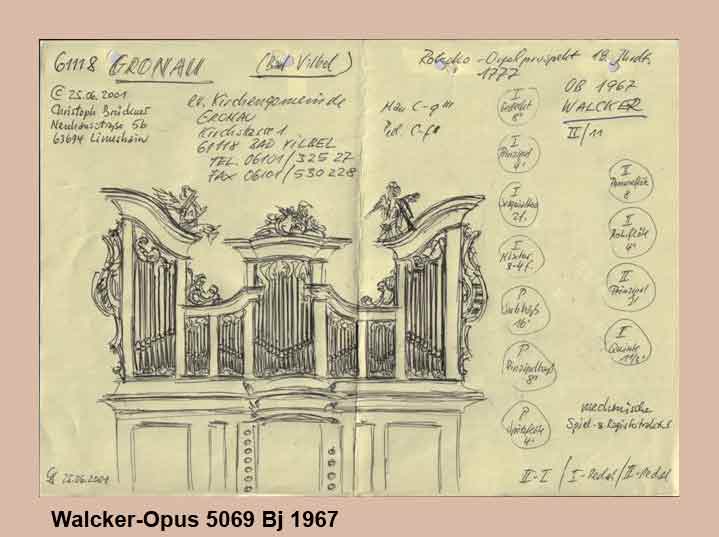 61118 GRONAU (Bad Vilbel)
© 25.06.2001
Christoph Brückner
Neuhausstraße 5b
63694 Limeshain
ev. Kirchengemeinde
GRONAU
Kirchstrasse 1
61118 BAD VILBEL
TEL. 06101/325 27
FAX 06101/530228
Rokoko-Orgelprospekt 18. Jhrdt.
1777
OB 1967
WALCKER
II/11
Man C-g'''
Ped. C-f'
I
Gedeckt
8'
I
Prinzipal
4'
I
2f.
I
Mixtur
3-4f.
P
Subbaß
16'
P
Prinzipalbaß
8'
P
4'
II
8'
II
Rohrflöte
4'
II
Prinzipal
2'
II
Quinte
1 1/3'
mechanische
Spiel- & Registertraktur
II-I / I-Pedal / II-Pedal
25.06.2001
Walcker-Opus 5069 Bj 1967